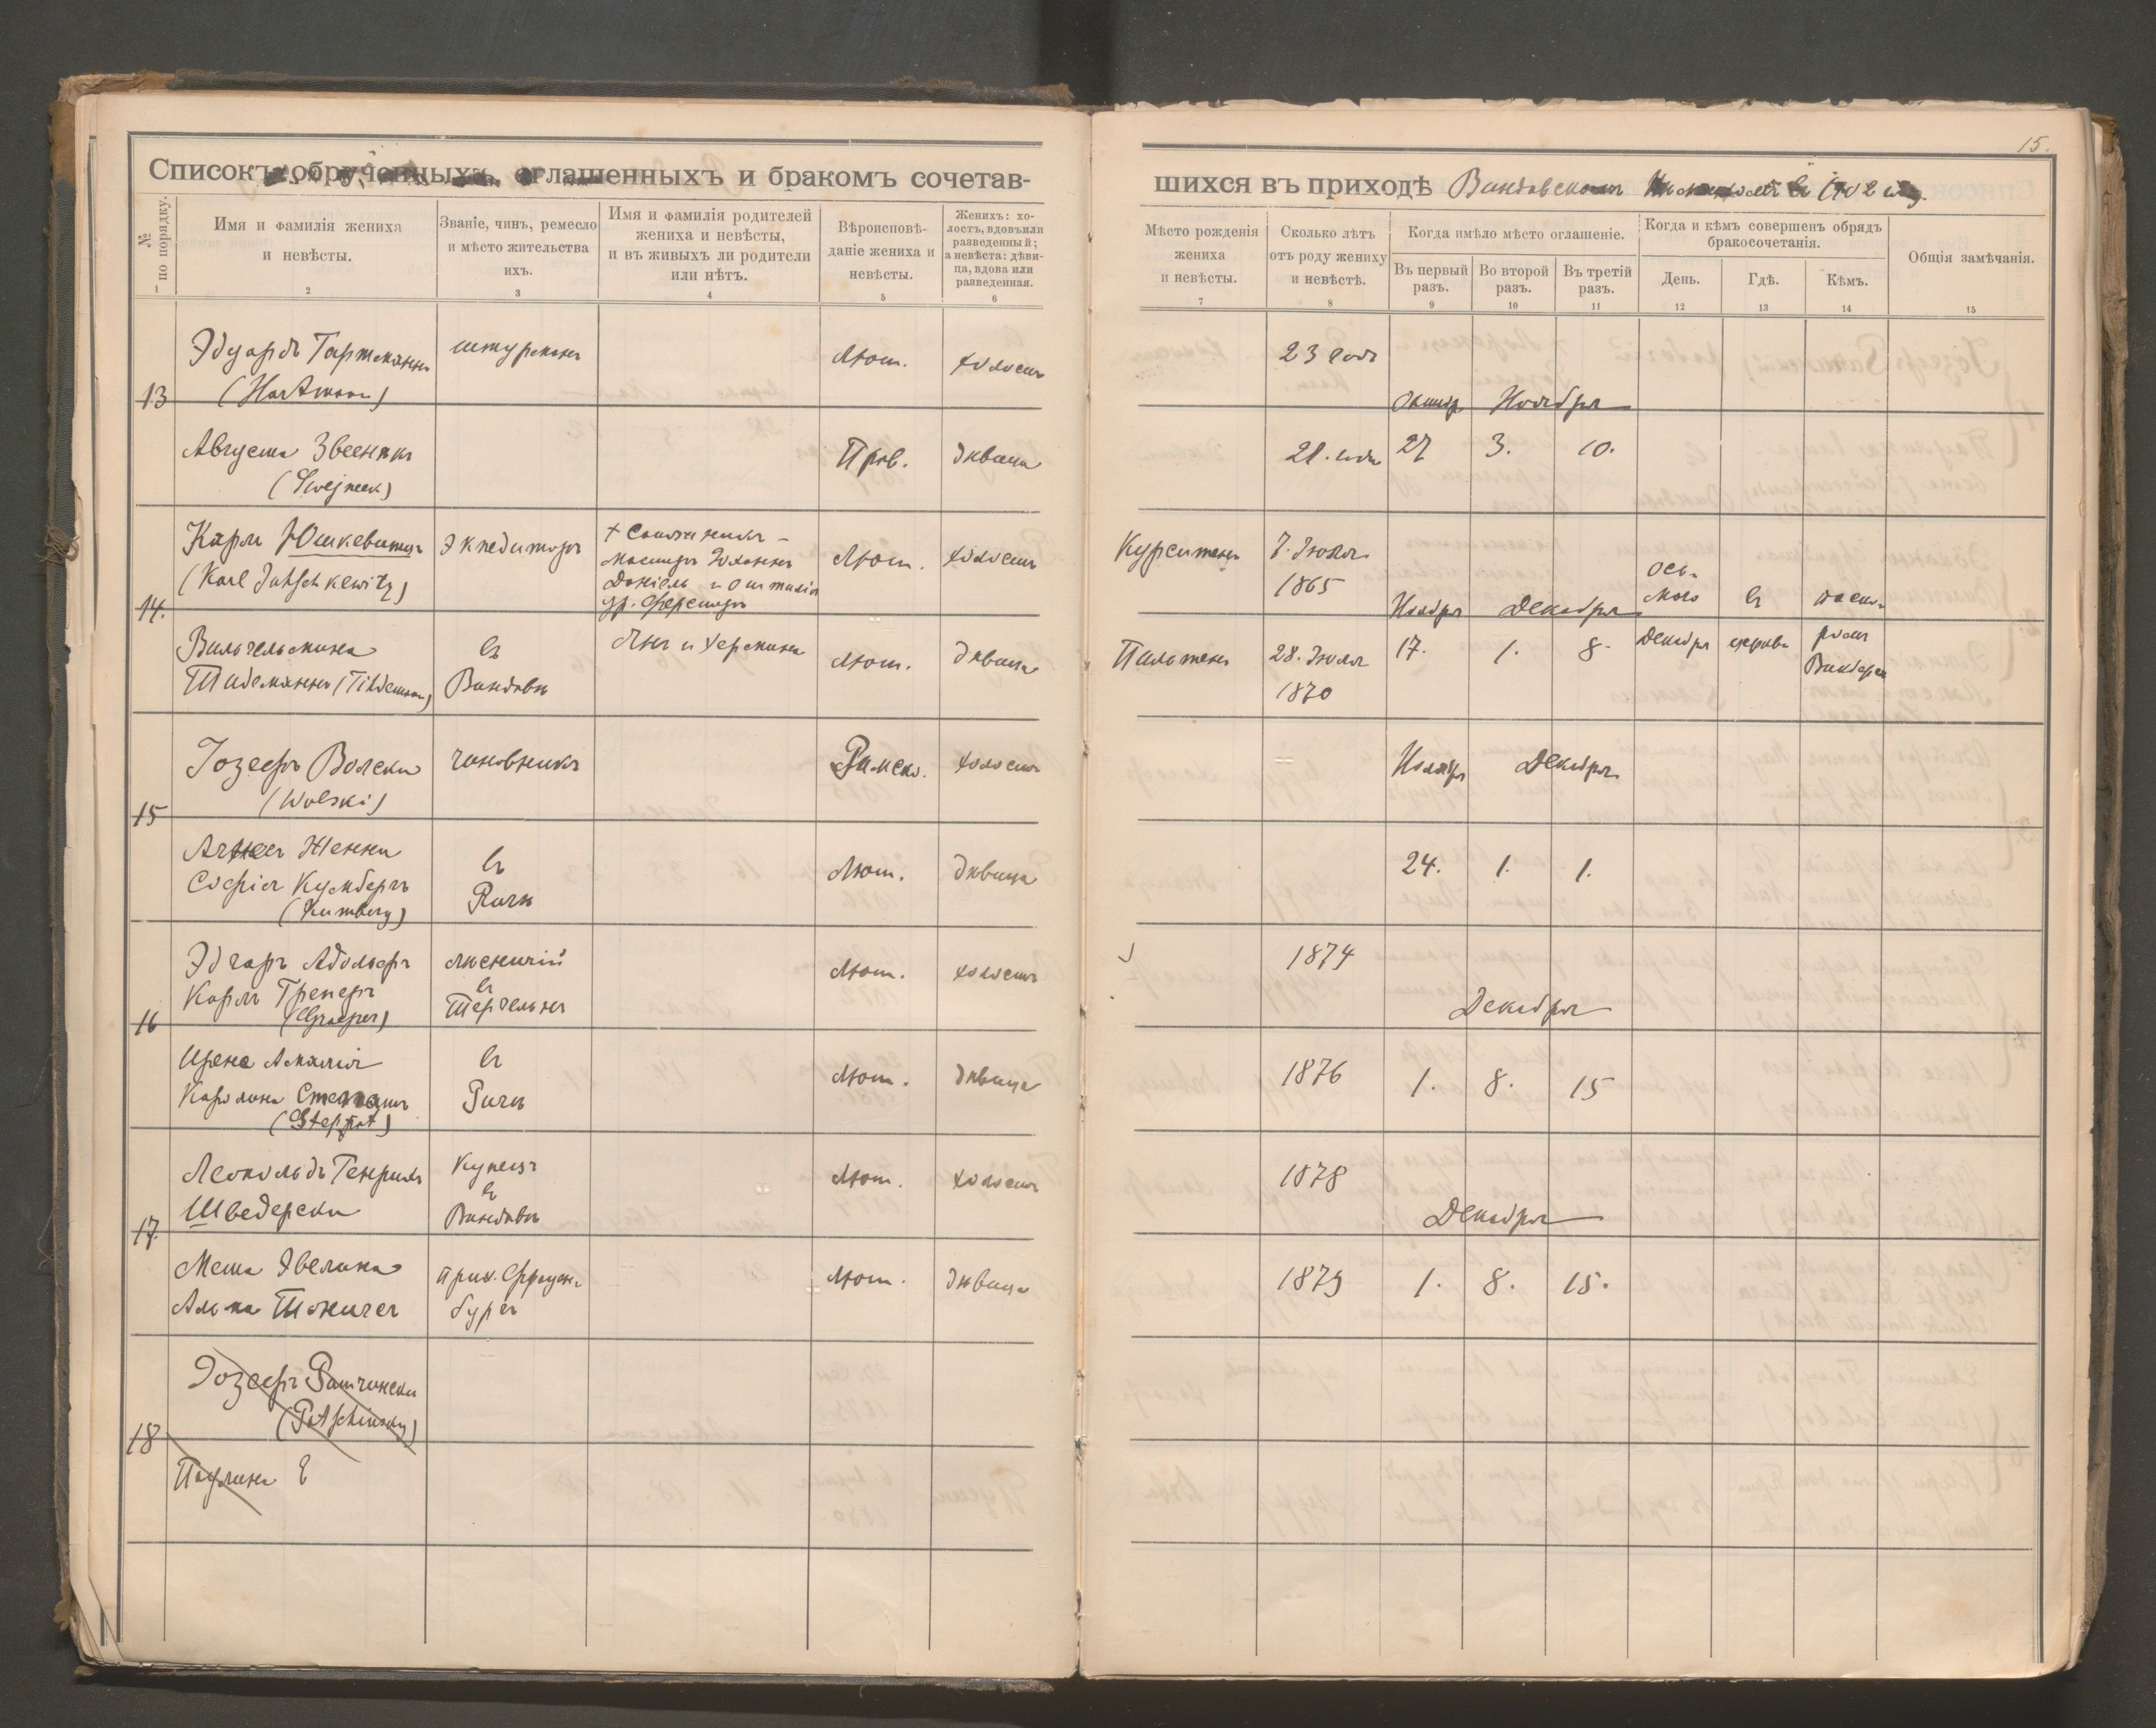 15.
Списокъ обрученныхъ оглашенныхъ и бракомъ сочетав-
шихся въ приходѣ Виндавскомъ 1902 году.
№ по порядку.
Имя и фамилія жениха
и невѣсты.
Званіе, чинъ, ремесло
и мѣсто жительства
ихъ.
Имя и фамилія родителей
жениха и невѣсты,
и въ живыхъ ли родители
или нѣтъ.
Вѣроисповѣ-
даніе жениха и
невѣсты.
Женихъ: хо-
лостъ, вдовъ или
разведенный;
а невѣста: дѣви-
ца, вдова или
разведенная.
Мѣсто рожденія
жениха
и невѣсты.
Сколько лѣтъ
отъ роду жениху
и невѣстѣ.
Когда имѣло мѣсто оглашеніе.
Въ первый
разъ.
Во второй
разъ.
Въ третій
разъ.
Когда и кѣмъ совершенъ обрядъ
бракосочетанія.
День.
Гдѣ.
Кѣмъ.
Общія замѣчанія.
1 2 3 4 5 6 7 8 9 10 11 12 13 14 15
13
Эдуардъ Гартманнъ
(Hartmann)
штурманъ
Лют.
холостъ
23 года
Октябр Ноября
Августа Звеенекъ
(Swejneek)
Прав.
дѣвица
21. года
27 3. 10.
14.
Карлъ Юшкевитцъ
(Karl Jutschkewitz)
Экпедиторъ
+ Сапожникъ-
мастеръ Іоганнъ
Даніель и Оттилія
ур. Ферстеръ
Лют.
холостъ
Курситенъ
7. Іюля
1865
Ноября Декабря
Ось-
маго
въ
Вильгельмина
Тидеманнъ (Tiedemann)
въ
Виндавѣ
Янъ и Хермина
Лют.
дѣвица
Пильтенъ
28. Іюля
1870
17. 1. 8.
Декабря
церкви
15
Іозефъ Вольски
(Wolski)
чиновникъ
Римско.
холостъ
Ноября Декабря
Агнесъ Женни
Софія Кумбергъ
(Kumberg)
въ
Ригѣ
Лют.
дѣвица
24. 1. 1.
16
Эдгаръ Адольфъ
Карлъ Греперъ
(Graeper)
лѣсничій
въ
Тергельнъ
Лют.
холостъ
1874
Декабря
Ирене Амалія
Каролина Степпатъ
(Steppat)
въ
Ригѣ
Лют.
дѣвица
1876
1. 8. 15
17.
Леопольдъ Генрихъ
Шведерски
Купецъ
въ
Виндавѣ
Лют.
холостъ
1878
Декабря
Мета Эвелина
Альма Тонигсъ
прих. Фрауен-
бургъ
Лют.
дѣвица
1879
1. 8. 15.
18
Іозефъ Патчински
(Patschinsky)
Паулина